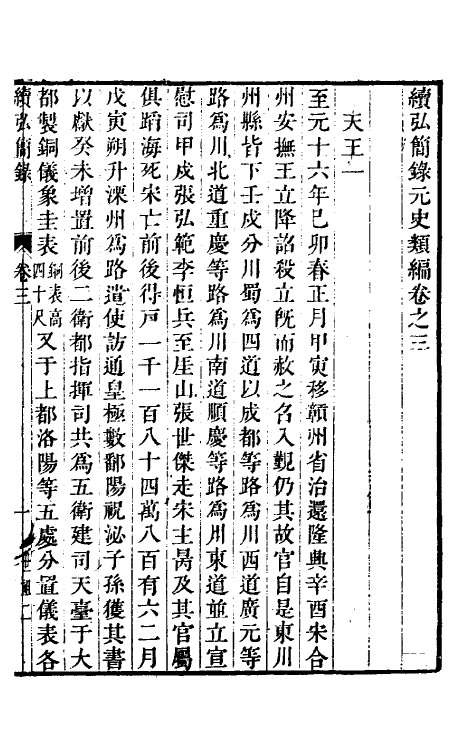 續弘簡錄元史類編卷之三
天王一
至元十六年己卯春正月甲寅移贛州省治還隆興辛酉宋合
州安撫王立降詔殺立旣而赦之名入覲仍其故官自是東川
州縣皆下壬戌分川蜀爲四道以成都等路爲川西道廣元等
路爲川北道重慶等路爲川南道順慶等路爲川東道並立宣
慰司甲戌張弘範李恒兵至厓山張世傑走宋主昺及其官屬
俱蹈海死宋亡前後得戸一千一百八十四萬八百有六二月
戊寅朔升溧州爲路遣使訪通皇極數鄱陽祝泌子孫獲其書
以獻癸未增置前後二衛都指揮司共爲五衛建司天臺于大
都製銅儀象圭表銅表高四十尺又于上都洛陽等五處分置儀表各
續弘簡錄
卷三
一